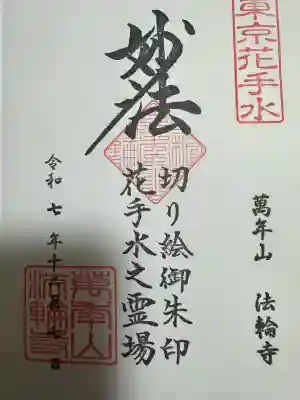 東京花手水
萬年山 法輪寺
妙法
切り絵御朱印
花手水之霊場
令和七年十
日
萬年山
法輪寺